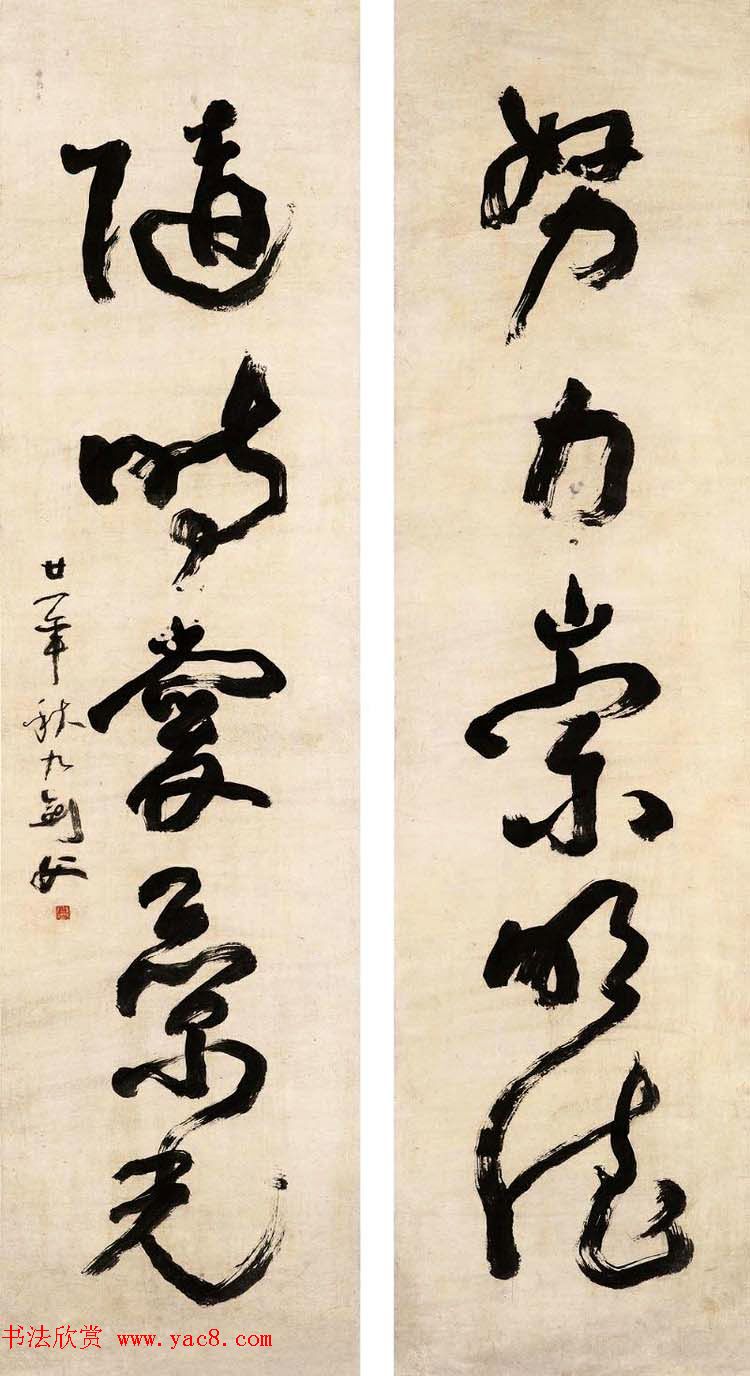 努力崇明德
随时爱景光
廿一年秋九剑父
书法欣赏 www.yac8.com